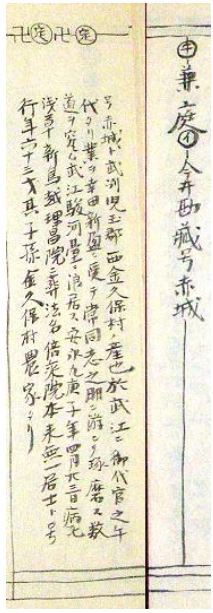 ㊥兼庭㋑今井勘蔵号赤城
卍定卍定
号赤城ハ武州児玉郡西金久保村ノ産也於武江ニ御代官之手
代タリ業ヲ幸田新盈ニ受テ常同志之朋ニ游ンテ琢磨ス数
道ヲ究ム武江駿河臺ニ浪居ス安永九庚子年四月廿三日病死
浅草新鳥越理昌院ニ葬法名倍永院本来無一居士ト号
行年六十三才其ノ子孫金久保村農家タリ